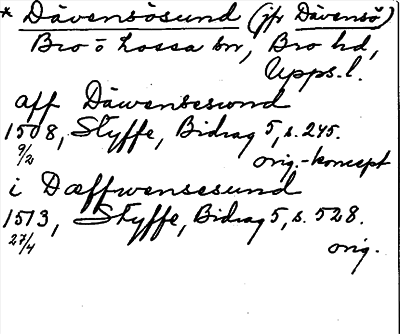 * Dävensösund (jfr Dävensö)
Bro o Lossa snr, Bro hd,
Upps. l.
aff Däwensswnd
1508, Styffe, Bidrag 5, s. 245.
9/2
orig.-koncept
i Dæffwensesund
1513, Styffe, Bidrag 5, s. 528.
27/4
orig.